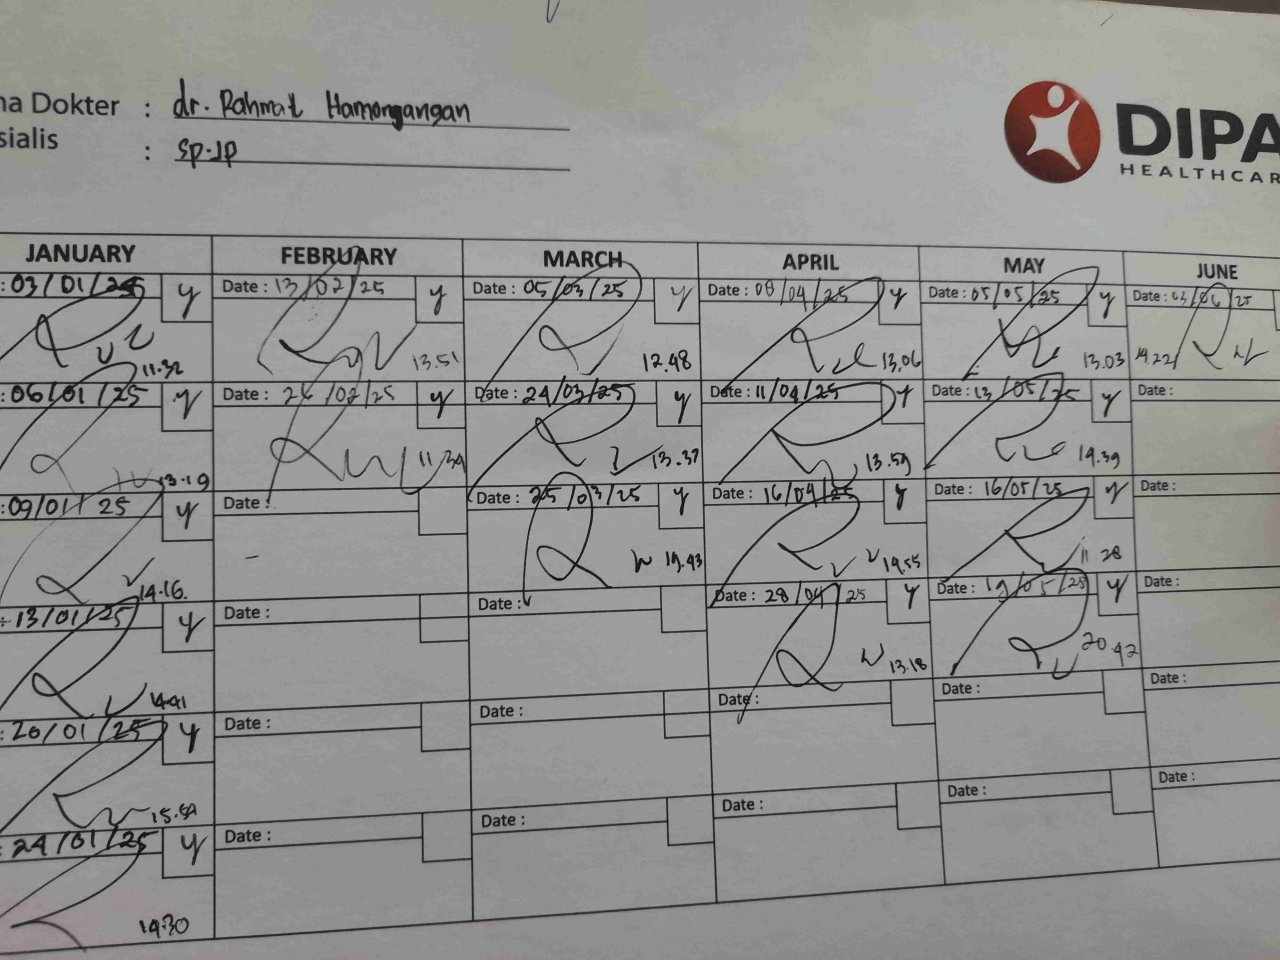 na Dokter : dr. Rahmat Hamongangan
sialis : Sp.Jp
DIPA
HEALTHCAR
JANUARY FEBRUARY MARCH APRIL MAY JUNE
: 03/01/25 y Date : 13/02/25 y Date : 05/03/25 y Date : 08/04/25 y Date : 05/05/25 y Date : 03/06/25
11.32 13.51 12.48 13.06 13.03 14.22
: 06/01/25 y Date : 26/02/25 y Date : 24/03/25 y Date : 11/04/25 y Date : 13/05/25 y Date :
13.19 11.39 13.37 13.59 14.39
: 09/01/25 y Date : Date : 25/03/25 y Date : 16/04/25 y Date : 16/05/25 y Date :
14.16. 19.43 14.55 11 28
: 13/01/25 y Date : Date : Date : 28/04/25 y Date : 19/05/25 y Date :
14.41 13.18 20.42
: 20/01/25 y Date : Date : Date : Date : Date :
15.59
: 24/01/25 y Date : Date : Date : Date : Date :
14.30